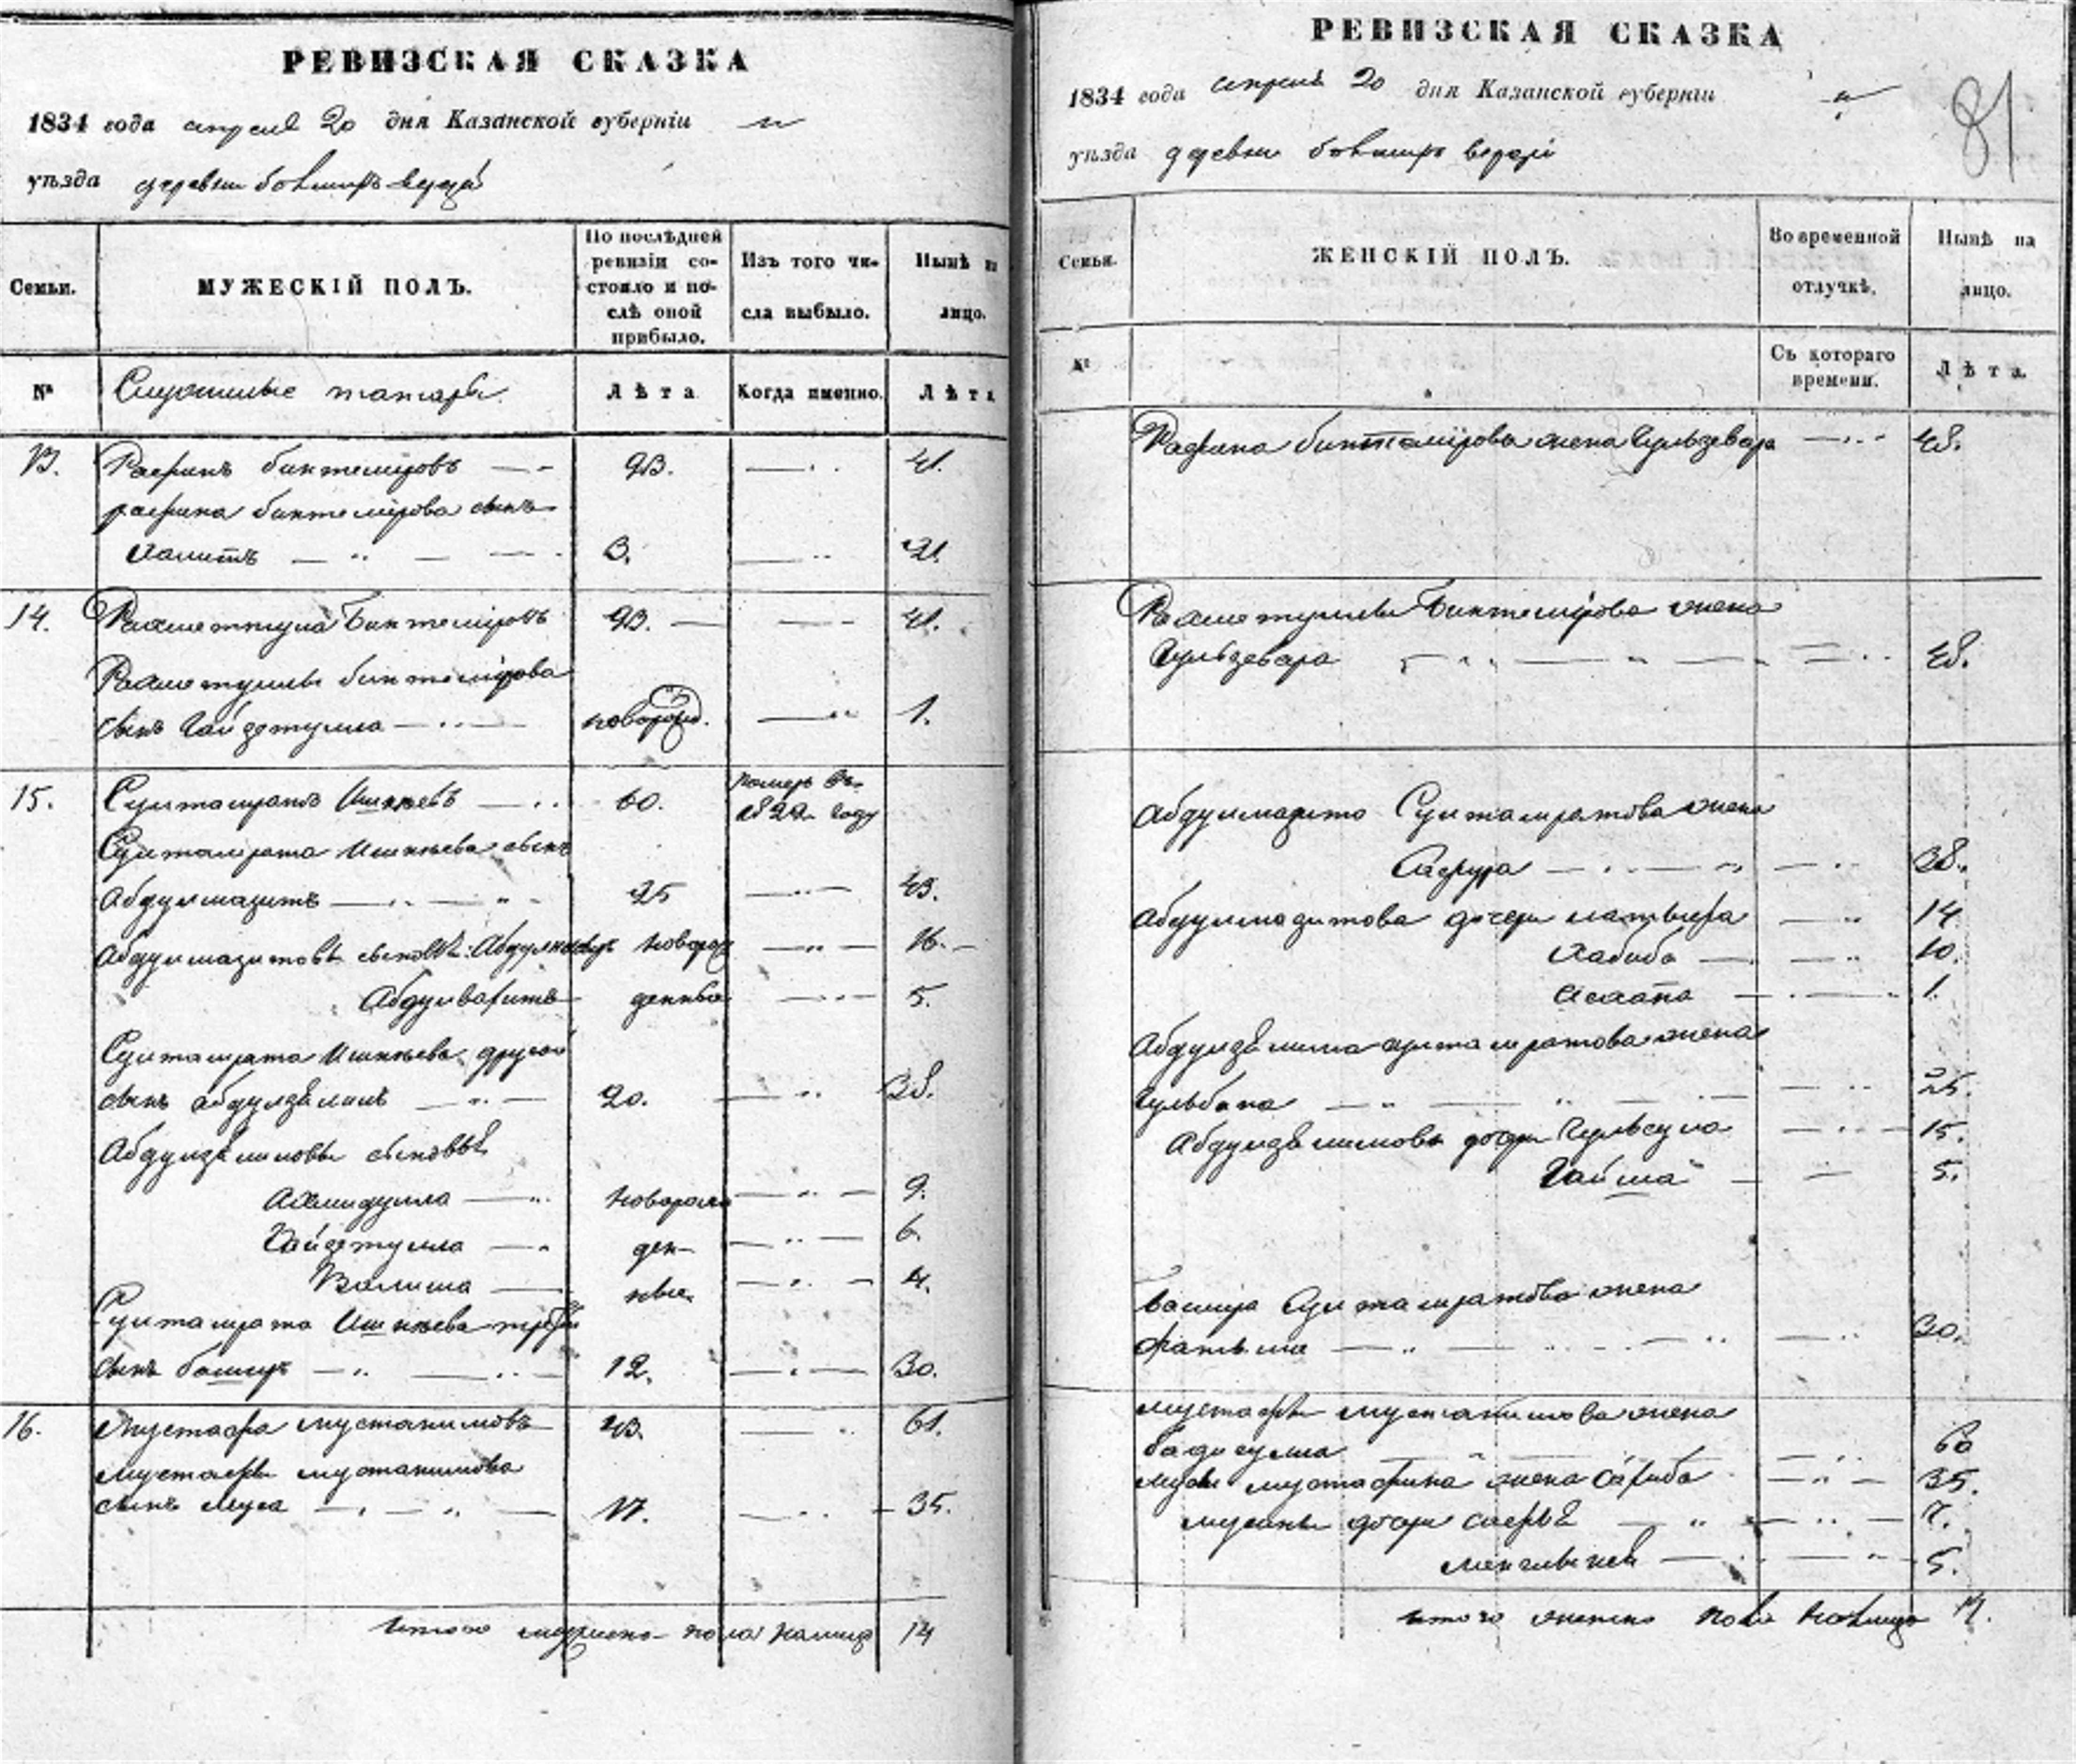 РЕВИЗСКАЯ СКАЗКА
1834 года апреля 20 дня Казанской губерніи
уѣзда деревни
Семьи.
МУЖЕСКІЙ ПОЛЪ.
По послѣдней ревизіи состояло и послѣ оной прибыло.
Изъ того числа выбыло.
Нынѣ на лицо.
№
Служилые татары
Лѣта
Когда именно.
Лѣта
13. Рафикъ биктемировъ 23. 41.
рафика биктемирова сынъ
Халитъ 3. 21.
14. Рахметтулла Биктемировъ 23. 41.
Рахметуллы биктемирова
сынъ Гайзетулла новорожд. 1.
15. Султамратъ Ишкѣевъ 60. померъ въ 1822 году
Султамрата Ишкѣева сынъ
Абдулмазитъ 25 43.
Абдулмазитовы сыновья: новорож 16.
Абдулваритъ денные 5.
Султамрата Ишкѣева другой
сынъ абдулзѣлилъ 20. 38.
Абдулзѣлиловы сыновья
Хамидулла новорож 9.
Гайзетулла ден- 6.
Валиша ные 4.
Султамрата Ишкѣева третій
сынъ башир 12. 30.
16. Мустафа мустакимовъ 43. 61.
мустафы мустакимова
сынъ Муса 17. 35.
Итого мужеска пола налицо 14
РЕВИЗСКАЯ СКАЗКА
1834 года апреля 20 дня Казанской губерніи
81
уѣзда деревни
Семьи.
ЖЕНСКІЙ ПОЛЪ.
Во временной отлучкѣ.
Нынѣ на лицо.
№
Съ котораго времени.
Лѣта.
Рафика биктемирова жена Гульзевара 48.
Рахметуллы Биктемирова жена
Гульзевара 48.
Абдулмазита Султамратова жена
38.
Абдулмазитова дочери 14
Хабиба 10.
1.
Абдулзѣлила султамратова жена
Гульбана 25.
Абдулзѣлиловы дочери 15.
Гайша 5.
башира Султамратова жена
фатыма 30.
мустафы мустакимова жена
бадигулма 60
мусы мустафина жена Сахиба 35.
мусины дочери 7.
5.
итого женска пола налицо 17.